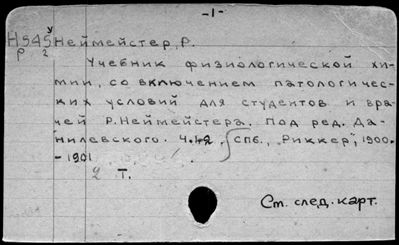 -1-
У
Н545 Неймейстер, Р.
р 2
Учебник физиологической хи-
мии, со включением патологичес-
ких условий для студентов и вра-
чей Р. Неймейстера. Под ред. Да-
нилевского. Ч. 1-2. СПб., "Риккер", 1900.
- 1901.
2 Т.
См. след. карт.